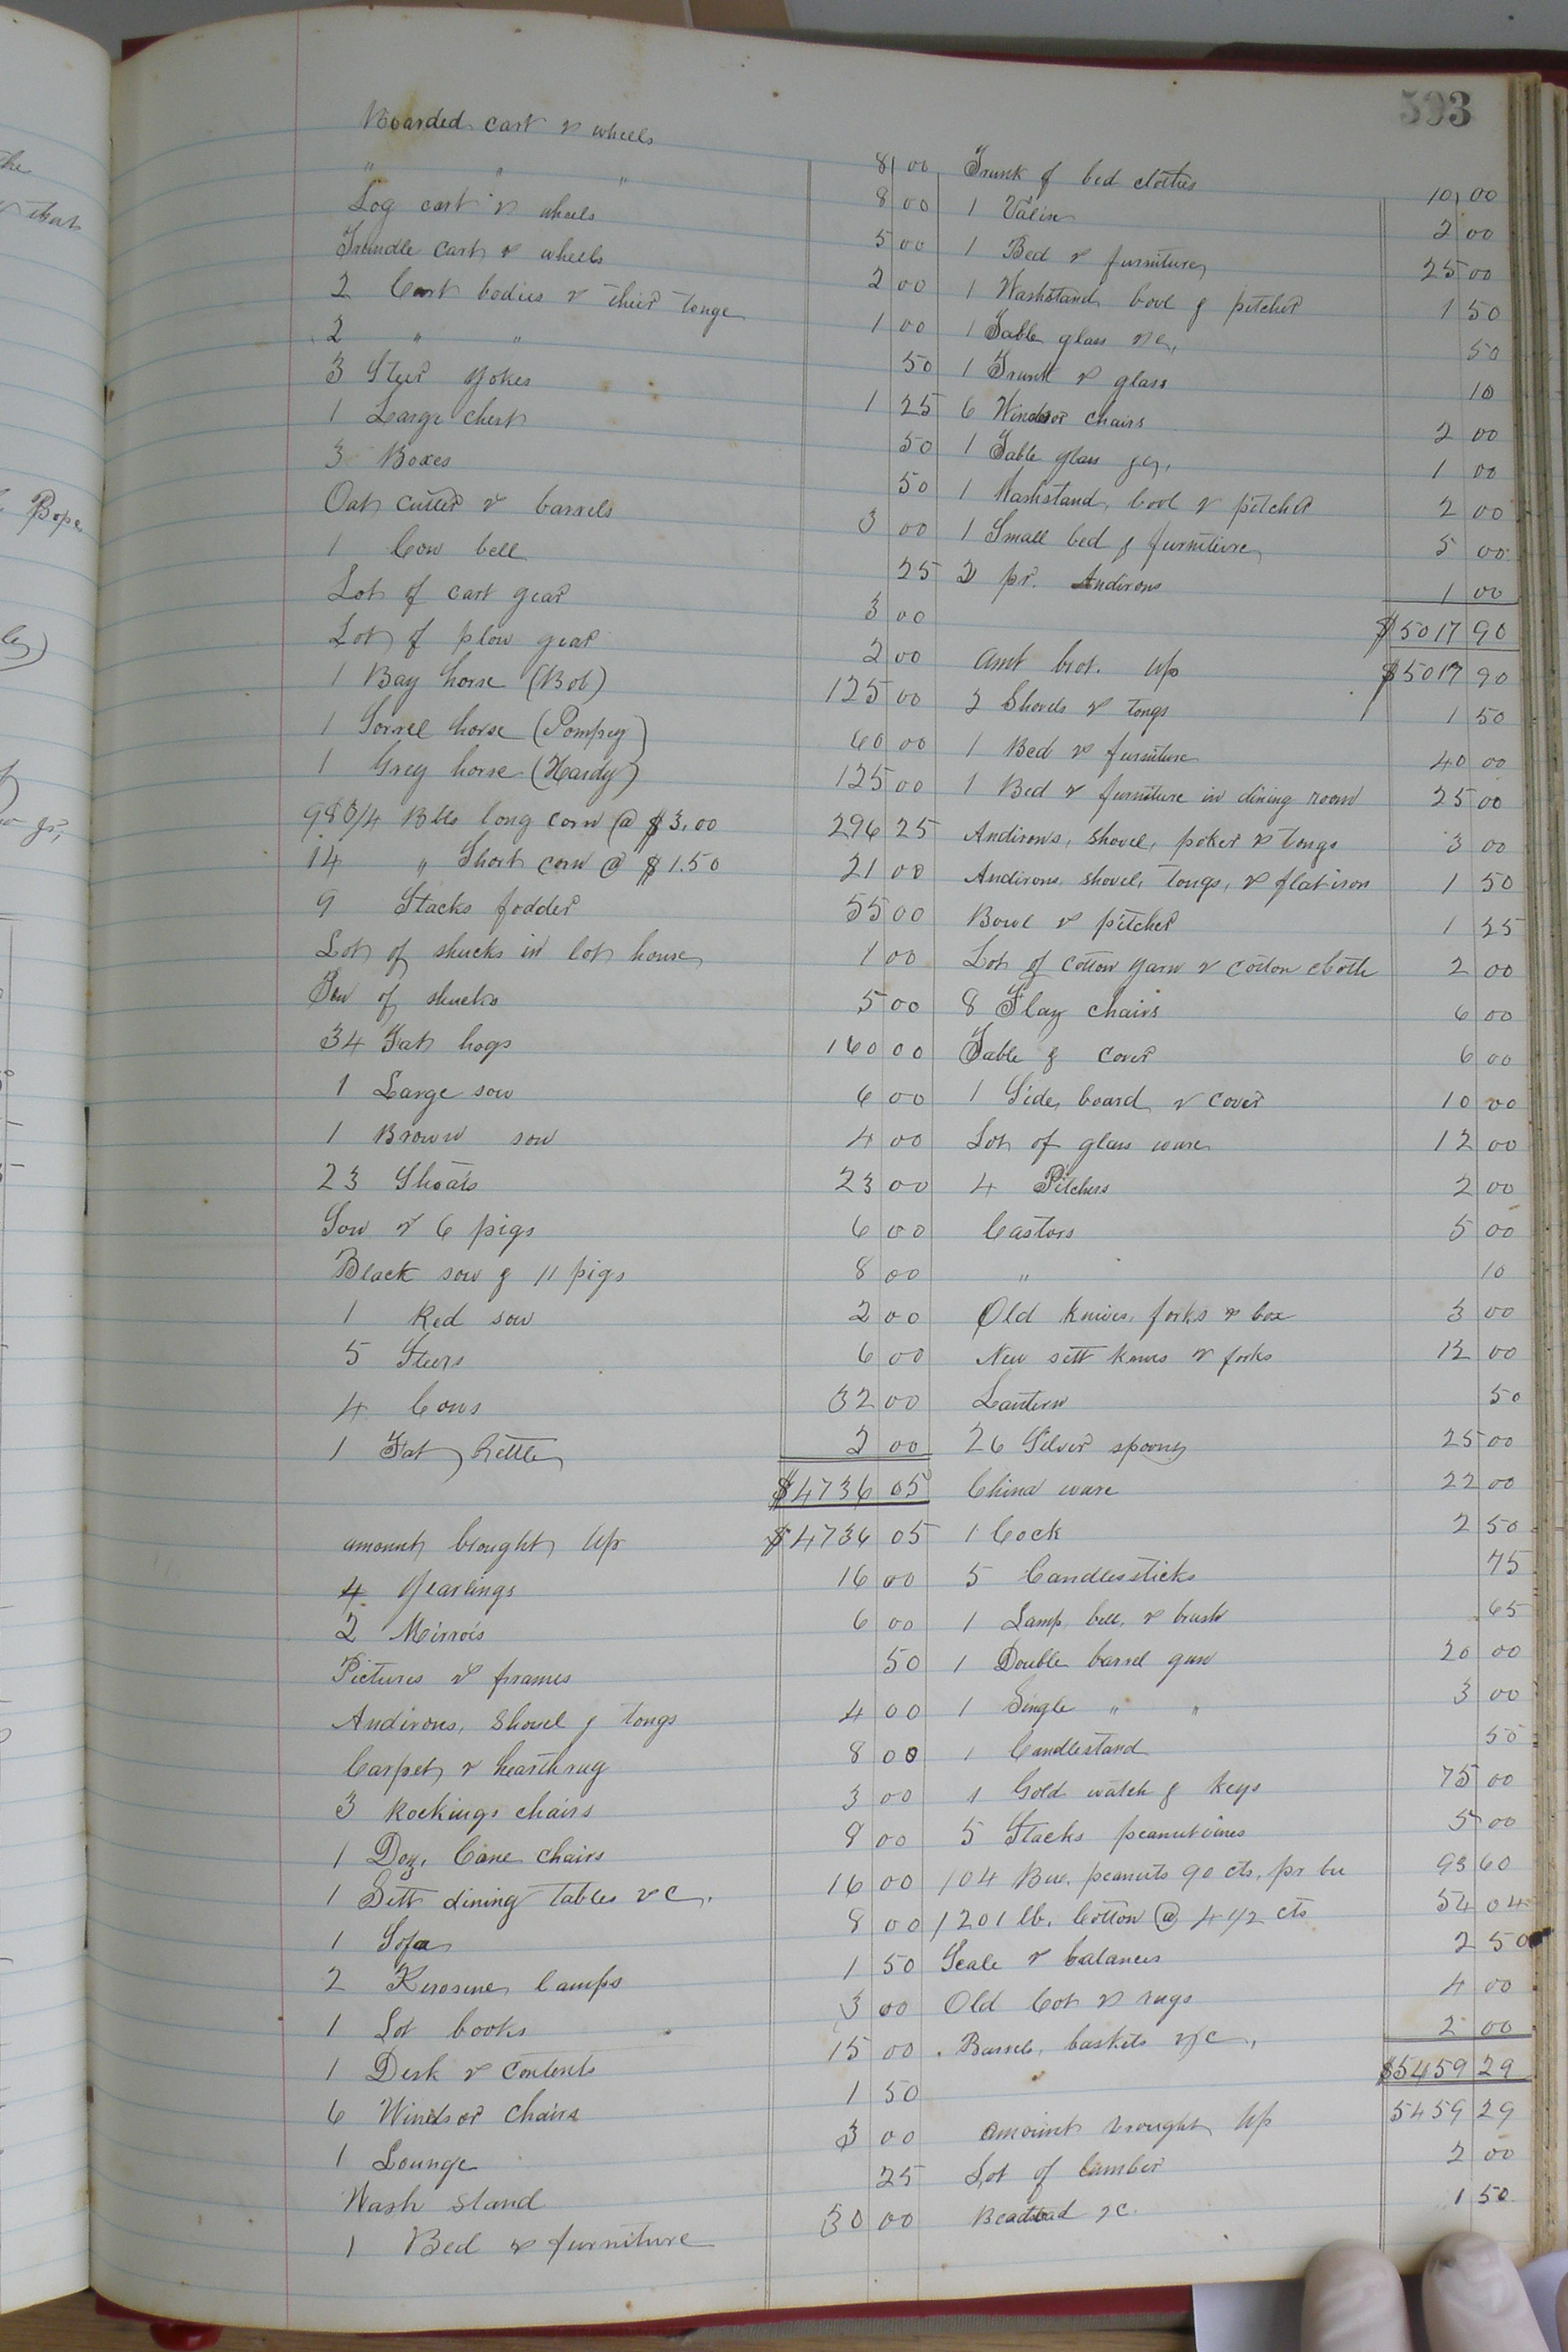 593
Boarded cart & wheels 8 00
" " " 8 00
Log cart & wheels 5 00
Trundle cart & wheels 2 00
2 Cart bodies & their tonge 1 00
2 " " 50
3 Steer yokes 1 25
1 Large chest 50
3 Boxes 50
Oat cutter & barrels 3 00
1 Cow bell 25
Lot of cart gear 3 00
Lot of plow gear 2 00
1 Bay horse (Bob) 125 00
1 Sorrel horse (Pompey) 60 00
1 Grey horse (Hardy) 125 00
98 3/4 Bbls long corn @ $3.00 296 25
14 " Short corn @ $1.50 21 00
9 Stacks fodder 55 00
Lot of shucks in lot house 1 00
Pen of shucks 5 00
34 Fat hogs 160 00
1 Large sow 6 00
1 Brown sow 4 00
23 Shoats 23 00
Sow & 6 pigs 6 00
Black sow & 11 pigs 8 00
1 Red sow 2 00
5 Steers 6 00
4 Cows 32 00
1 Fat Kettle 2 00
$4736 05
amount brought up $4736 05
4 Yearlings 16 00
2 Mirrors 6 00
Pictures & frames 50
Andirons, Shovel & tongs 4 00
Carpet & hearthrug 8 00
3 Rockings chairs 3 00
1 Doz. Cane chairs 8 00
1 Sett dining tables &c. 16 00
1 Sofa 8 00
2 Kerosine lamps 1 50
1 Lot books 3 00
1 Desk & contents 15 00
6 Windsor chairs 1 50
1 Lounge 3 00
Wash stand 25
1 Bed & furniture 30 00
Trunk of bed clothes 10 00
1 Valise 2 00
1 Bed & furniture 25 00
1 Washstand bowl & pitcher 1 50
1 Table glass &c, 50
1 Trunk & glass 10
6 Windsor chairs 2 00
1 Table glass &c, 1 00
1 Washstand, bowl & pitcher 2 00
1 Small bed & furniture 5 00
2 pr. Andirons 1 00
$5017 90
Amt brot. up $5017 90
2 Shovels & tongs 1 50
1 Bed & furniture 40 00
1 Bed & furniture in dining room 25 00
Andirons, shovel, poker & tongs 3 00
Andirons, shovel, tongs, & flat iron 1 50
Bowl & pitcher 1 25
Lot of cotton yarn & cotton cloth 2 00
8 Flag chairs 6 00
Table & cover 6 00
1 Side board & cover 10 00
Lot of glass ware 12 00
4 Pitchers 2 00
Castors 5 00
" 10
Old knives, forks & box 3 00
New sett knives & forks 12 00
Lantern 50
26 Silver spoons 25 00
China ware 22 00
1 Cock 2 50
5 Candlessticks 75
1 Lamp, bell, & brush 65
1 Double barrel gun 20 00
1 Single " " 3 00
1 Candlestand 50
1 Gold watch & keys 75 00
5 Stacks peanutvines 5 00
104 Bu. peanuts 90 cts. pr bu 93 60
1201 lb. Cotton @ 4 1/2 cts 54 04
Scale & balances 2 50
Old Cot & rugs 4 00
Barrels, baskets &c, 2 00
$5459 29
amount brought up 5459 29
Lot of lumber 2 00
Beadstead &c. 1 50